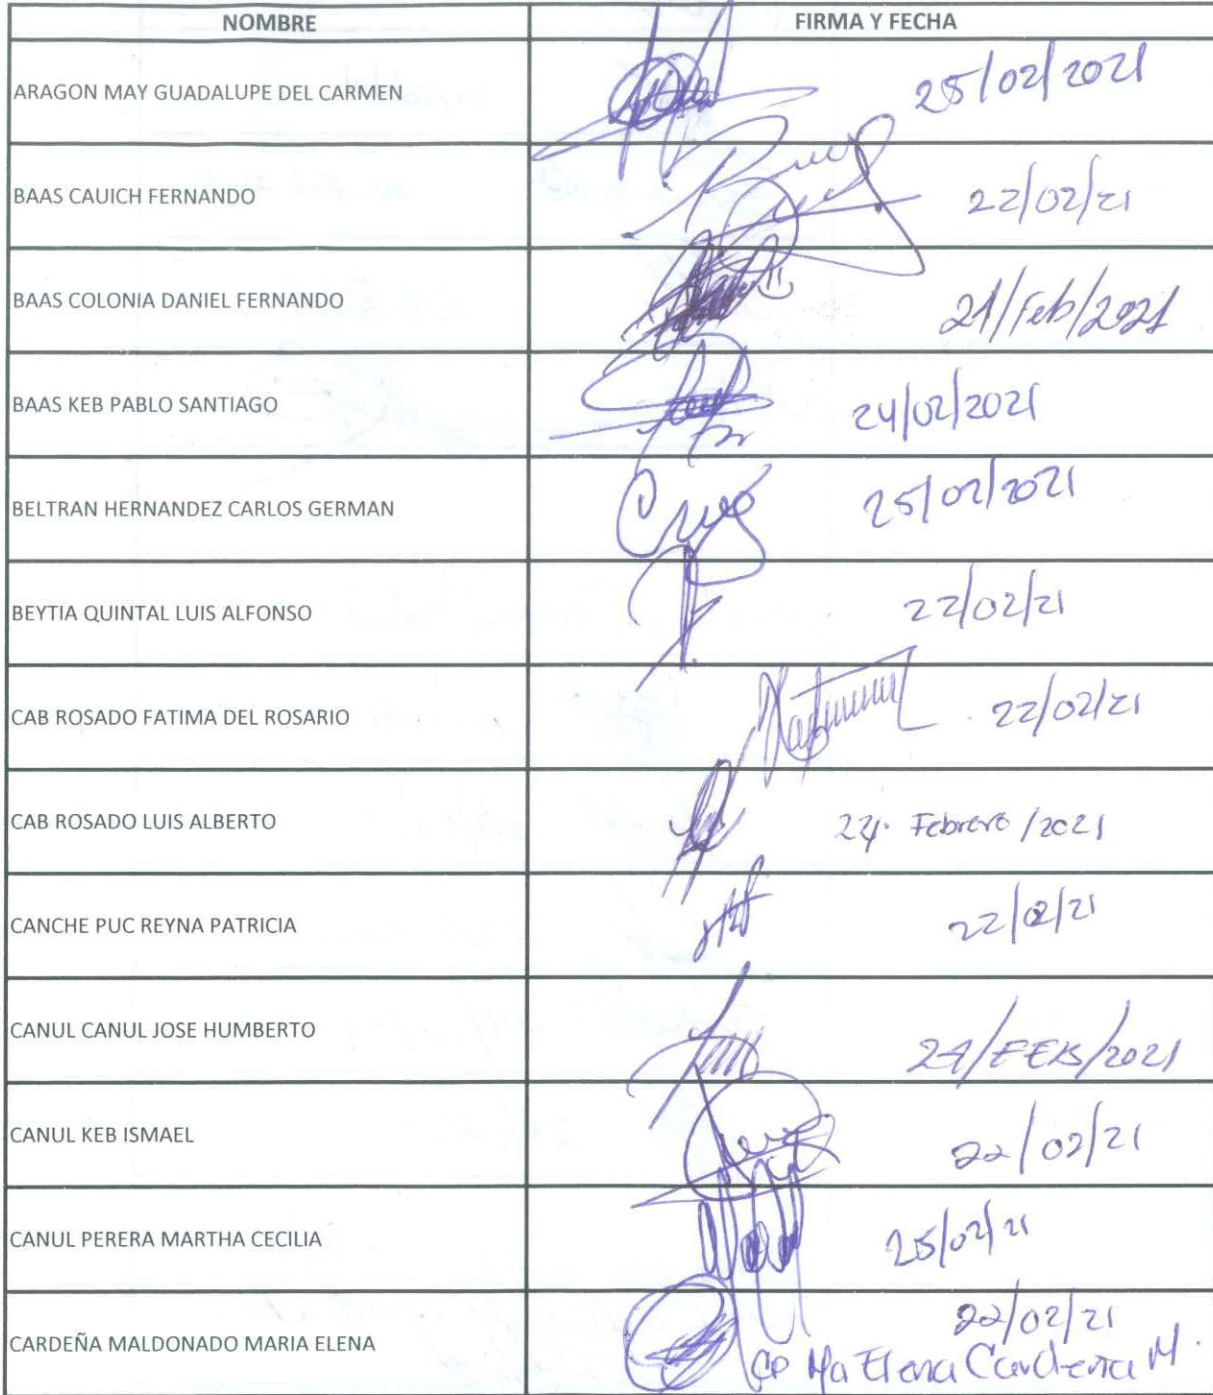 NOMBRE FIRMA Y FECHA
ARAGON MAY GUADALUPE DEL CARMEN 25/02/2021
BAAS CAUICH FERNANDO 22/02/21
BAAS COLONIA DANIEL FERNANDO 21/Feb/2021
BAAS KEB PABLO SANTIAGO 24/02/2021
BELTRAN HERNANDEZ CARLOS GERMAN 25/02/2021
BEYTIA QUINTAL LUIS ALFONSO 22/02/21
CAB ROSADO FATIMA DEL ROSARIO 22/02/21
CAB ROSADO LUIS ALBERTO Febrero/2021
CANCHE PUC REYNA PATRICIA 22/02/21
CANUL CANUL JOSE HUMBERTO 24/FEB/2021
CANUL KEB ISMAEL 22/02/21
CANUL PERERA MARTHA CECILIA 25/02/21
CARDEÑA MALDONADO MARIA ELENA 22/02/21
Ma Elena Cardeña M.